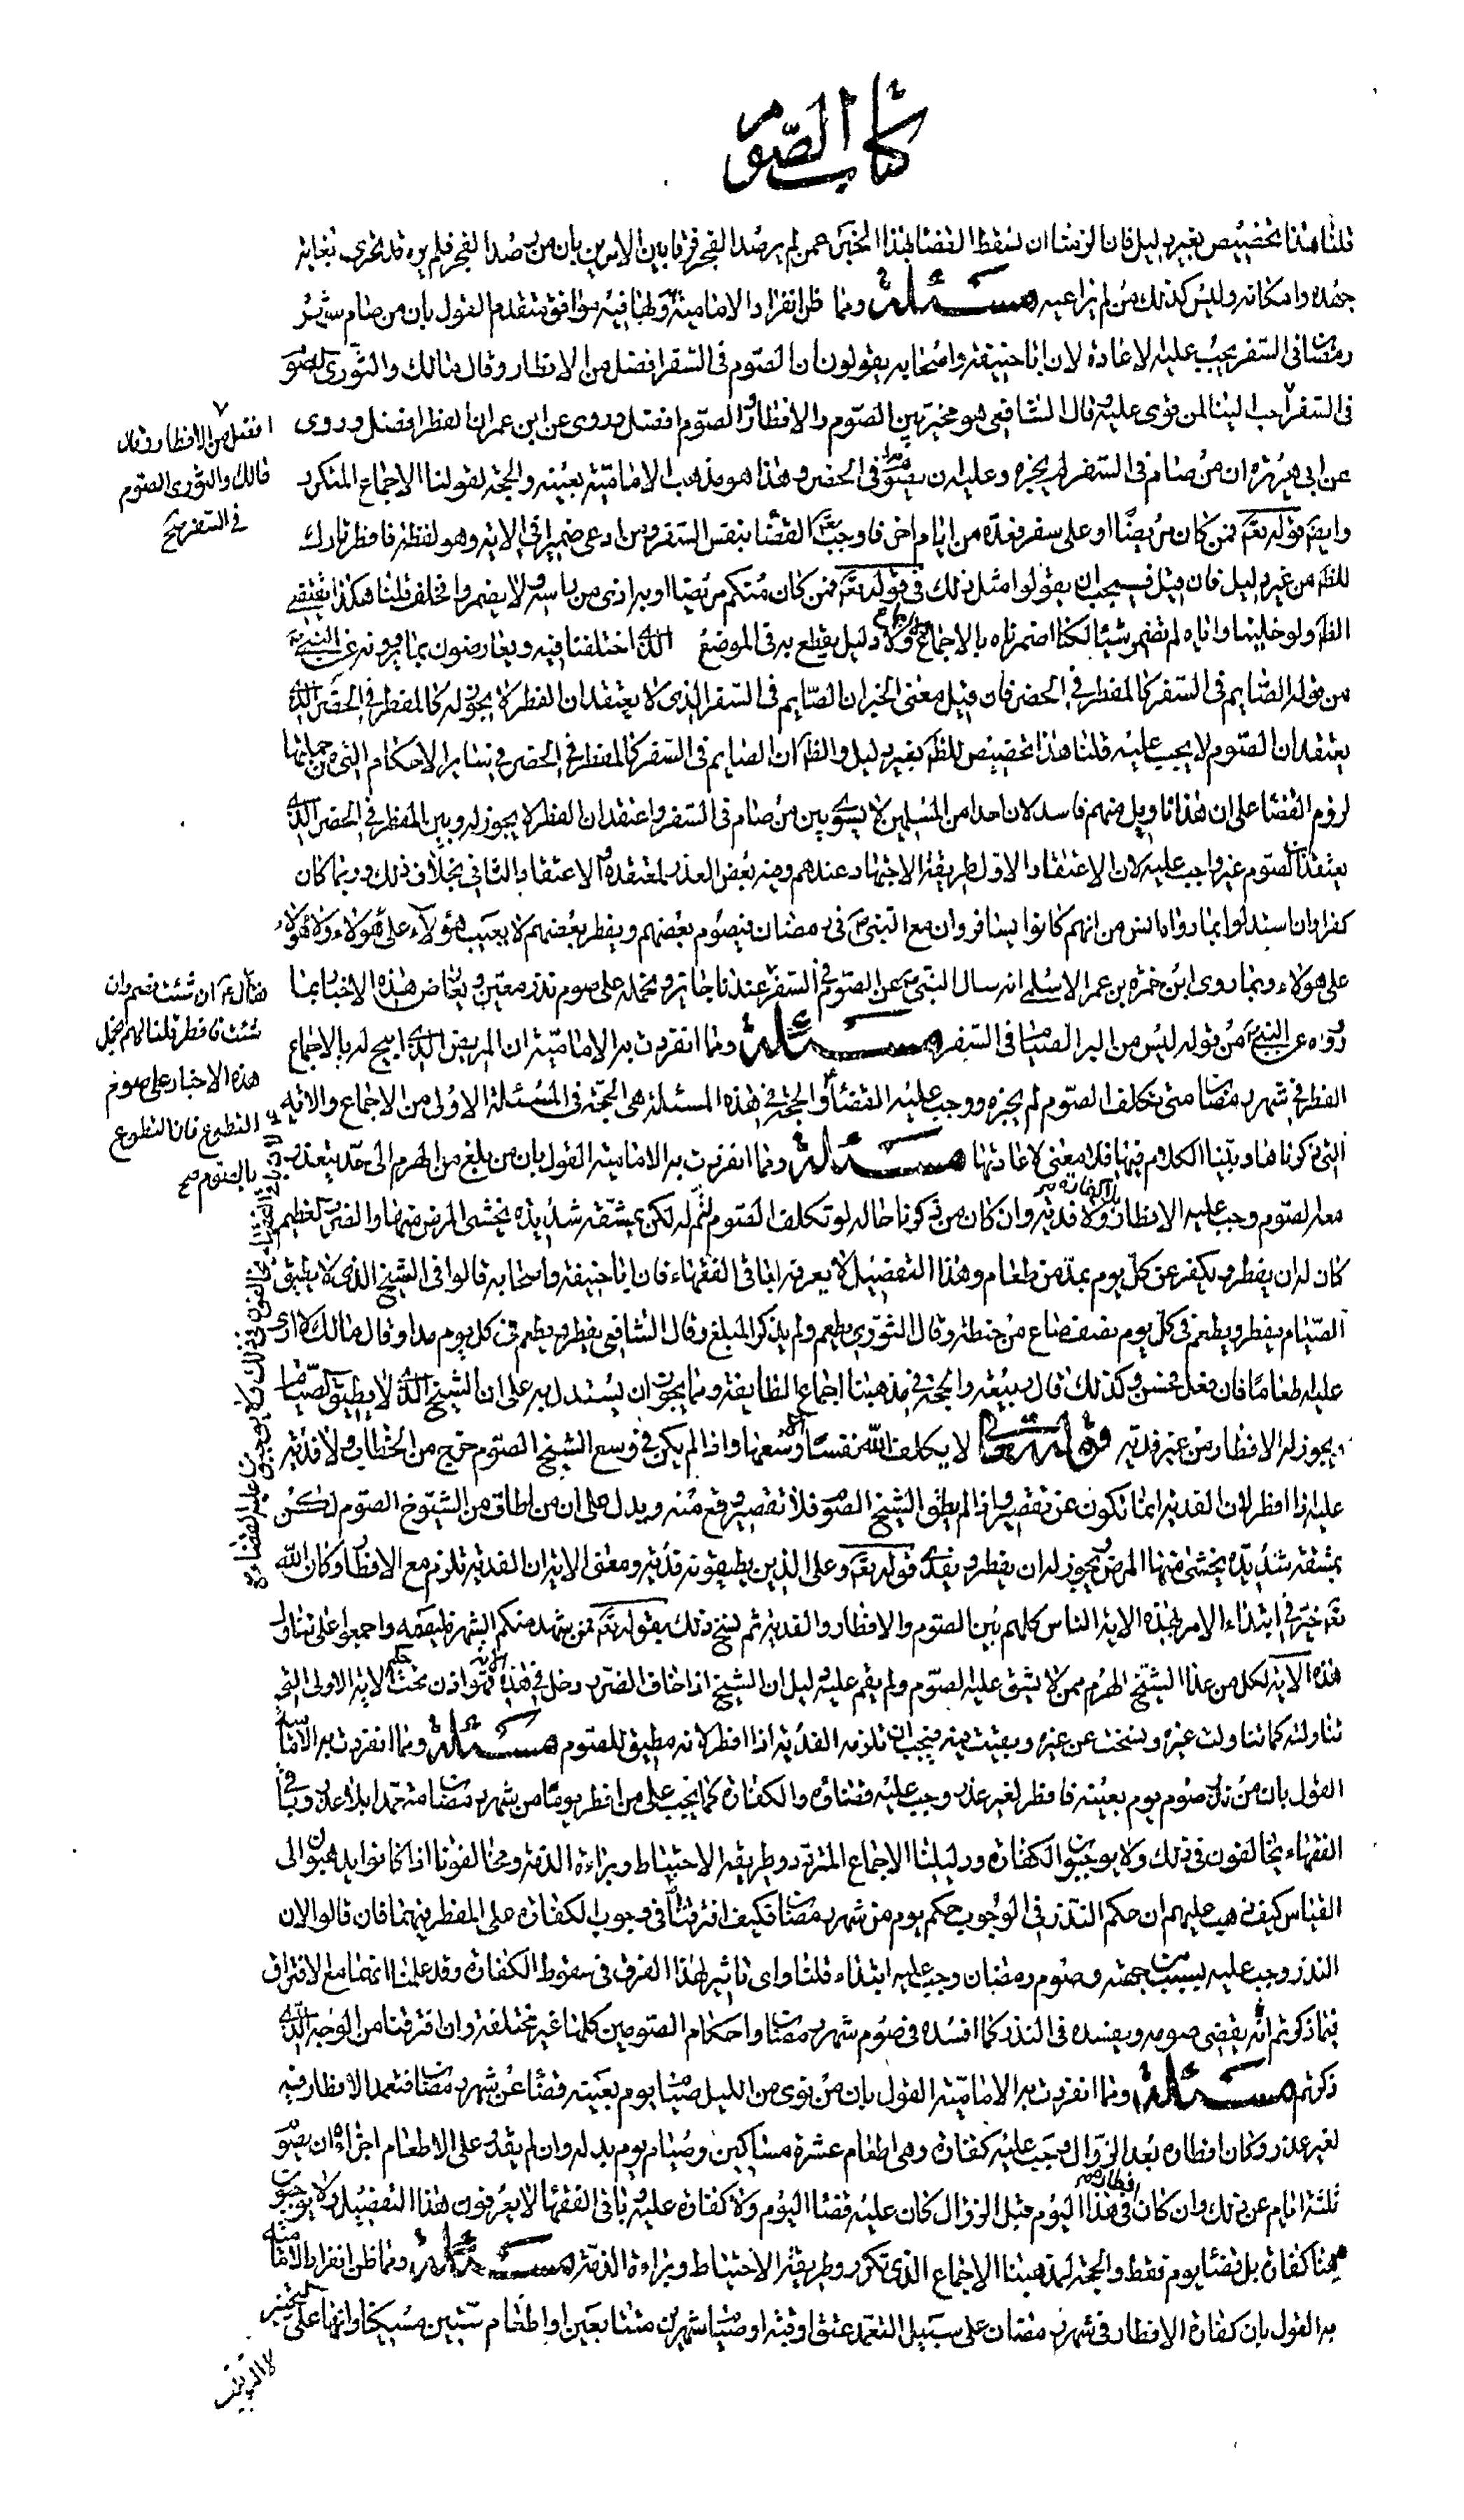 كتاب الصوم
قلنا هذا تخصيص بغير دليل فان الزمنا ان نسقط القضا بهذا الخبر عمن لم يرصد الفجر فرقنا بين الامرين بان من رصد الفجر فلم يره قد تحرى بغاية
جهده وامكانه وليس كذلك من لم يراعيه مسئلة ومما ظن انفراد الامامية به ولها فيه موافق متقدم القول بان من صام شهر
رمضان فى السفر يجب عليه الاعادة لان ابا حنيفة واصحابه يقولون ان الصوم فى السفر افضل من الافطار وقال مالك والثورى الصوم
فى السفر احب الينا لمن قوى عليه وقال الشافعى هو مخير بين الصوم والافطار والصوم افضل وروى عن ابن عمر ان الفطر افضل وروى
افضل من الافطار وقال
مالك والثورى الصوم
فى السفر صح
عن ابى هريرة ان من صام فى السفر لم يجزه وعليه ان يصوم فى الحضر وهذا هو مذهب الامامية بعينه والحجة لقولنا الاجماع المتكرر
وايضا قوله تعالى فمن كان مريضا او على سفر فعدة من ايام اخر فاوجب تعالى القضا بنفس السفر ومن ادعى ضميرا فى الاية وهو لفظة فافطر تارك
للظ من غير دليل فان قيل فيجب ان يقولوا مثل ذلك فى قوله تعالى فمن كان منكم مريضا او به اذى من راسه ولا يضمروا فحلق قلنا هكذا يقتضى
الظ ولو خلينا واياه لم نضمر شيئا لكنا اضمرناه بالاجماع ولا اجماع ولا دليل يقطع به فى الموضع الذى اختلفنا فيه ويعارضون بما يروونه عن النبى
من قوله الصايم فى السفر كالمفطر فى الحضر فان قيل معنى الخبر ان الصايم فى السفر الذى لا يعتقد ان الفطر لا يجوز له كالمفطر فى الحضر الذى
يعتقد ان الصوم لا يجب عليه قلنا هذا تخصيص للظ بغير دليل والظ ان الصايم فى السفر كالمفطر فى الحضر فى ساير الاحكام التى من جملتها
لزوم القضا على ان هذا تاويل منهم فاسد لان احدا من المسلمين لا يسوى بين من صام فى السفر واعتقد ان الفطر لا يجوز له وبين المفطر فى الحضر الذى
يعتقد ان الصوم غير واجب عليه لان الاعتقاد الاول طريقه الاجتهاد عندهم وفيه بعض العذر لمعتقده والاعتقاد الثانى بخلاف ذلك وربما كان
كفرا وان استدلوا بما رواه انس من انهم كانوا يسافرون مع النبى ص فى رمضان فيصوم بعضهم ويفطر بعضهم لا يعيب هؤلاء على هؤلاء ولا هؤلاء
على هؤلاء وبما روى ابن حمزة بن عمر الاسلمى انه سال النبى ص عن الصوم فى السفر عندنا جايز ونحمله على صوم نذر معين ويعارض هذه الاخبار بما
فقال له ان شئت فصم وان
شئت فافطر قلنا لهم نحمل
هذه الاخبار على صوم
التطوع فان التطوع
بالصوم صح
رووه عن النبى من قوله ليس من البر الصيام فى السفر مسئلة ومما انفردت به الامامية ان المريض الذى ابيح له بالاجماع
الفطر فى شهر رمضان متى تكلف الصوم لم يجزه ووجب عليه القضا والحجة فى هذه المسئلة هى الحجة فى المسئلة الاولى من الاجماع والاية
التى ذكرناها وبينا الكلام فيها فلا معنى لاعادتها مسئلة ومما انفردت به الامامية القول بان من بلغ من الهرم الى حد يتعذر
معه الصوم وجب عليه الافطار بلا كفارة ولا فدية وان كان من ذكرنا حاله لو تكلف الصوم لتم له لكن بمشقة شديدة يخشى المرض منها والضرر العظيم
كان له ان يفطر ويكفر عن كل يوم بمد من طعام وهذا التفصيل لا يعرفه باقى الفقهاء فان ابا حنيفة واصحابه قالوا فى الشيخ الذى لا يطيق
الصيام يفطر ويطعم فى كل يوم نصف صاع من حنطة وقال الثورى يطعم ولم يذكر المبلغ وقال الشافعى يفطر ويطعم عن كل يوم مدا وقال مالك لا ارى
عليه طعاما فان فعل فحسن وكذلك قال ربيعة والحجة فى مذهبنا اجماع الطايفة ومما يجوز ان يستدل به على ان الشيخ الذى لا يطيق الصيام
يجوز له الافطار من غير فدية قوله تعالى لا يكلف الله نفسا الا وسعها واذا لم يكن فى وسع الشيخ الصوم خرج من الخطاب ولا فدية
عليه اذا افطر لان الفدية انما تكون عن تقصير واذا لم يطق الشيخ الصوم فلا تقصير وقع منه ويدل على ان من اطاق من الشيوخ الصوم لكن
بمشقة شديدة يخشى منها المرض يجوز له ان يفطر ويفدى قوله تعالى وعلى الذين يطيقونه فدية ومعنى الاية ان الفدية تلزم مع الافطار وكان الله
تعالى خير فى ابتداء الامر بهذه الاية الناس كلهم بين الصوم والافطار والفدية ثم نسخ ذلك بقوله تعالى فمن شهد منكم الشهر فليصمه واجمعوا على تناول
هذه الاية لكل من عدا الشيخ الهرم ممن لا يشق عليه الصوم ولم يقم عليه دليل ان الشيخ اذا خاف الضرر دخل فى هذه الاية فهو اذن تحت حكم الاية الاولى التى
تناولته كما تناولت غيره ونسخت عن غيره وبقيت فيه فيجب ان تلزمه الفدية اذا افطر لانه مطيق للصوم مسئلة ومما انفردت به الامامية
القول بان من نذر صوم يوم بعينه فافطر لغير عذر وجب عليه قضاؤه والكفارة كما يجب على من افطر يوما من شهر رمضان متعمدا بلا عذر وباقى
الفقهاء يخالفون فى ذلك ولا يوجبون الكفارة ودليلنا الاجماع المتردد وطريقة الاحتياط وبراءة الذمة ومخالفونا اذا كانوا يذهبون الى
القياس كيف ذهب عليهم ان حكم النذر فى الوجوب حكم يوم من شهر رمضان فكيف افترقتا فى وجوب الكفارة على المفطر فيهما فان قالوا لان
النذر وجب عليه بسبب من جهته وصوم رمضان وجب عليه ابتداء قلنا واى تاثير لهذا الفرق فى سقوط الكفارة وقد علمنا انهما مع الافتراق
فيما ذكرتم انه يقضى صومه ويفسده فى النذر كما افسده فى صوم شهر رمضان واحكام الصومين كلها غير مختلفة وان افترقنا من الوجه الذى
ذكرتم مسئلة ومما انفردت به الامامية القول بان من نوى من الليل صيام يوم بعينه قضاء عن شهر رمضان فتعمد الافطار فيه
لغير عذر وكان افطاره بعد الزوال وجب عليه كفارة وهى اطعام عشرة مساكين وصيام يوم بدله وان لم يقدر على الاطعام اجزاه ان يصوم
ثلثة ايام عن ذلك وان كان افطاره فى هذا اليوم قبل الزوال كان عليه قضا اليوم ولا كفارة عليه وباقى الفقها لا يعرفون هذا التفصيل ولا يوجبون
هنا كفارة بل قضا يوم فقط والحجة لمذهبنا الاجماع الذى تكرر وطريقة الاحتياط وبراءة الذمة مسئلة ومما ظن انفراد الامامية
به القول بان كفارة الافطار فى شهر رمضان على سبيل التعمد عتق رقبة او صيام شهرين متتابعين او اطعام ستين مسكينا وانها على التخيير
لا الترتيب